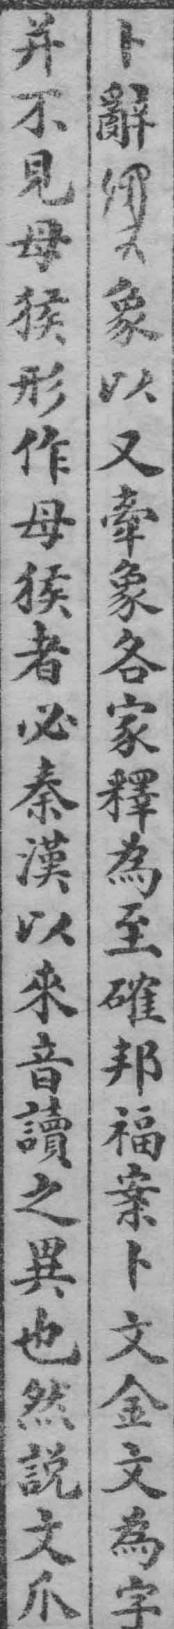 卜辭象以又牽象各家釋為至確邦福案卜文金文為字
并不見母猴形作母猴者必秦漢以來音讀之異也然説文爪